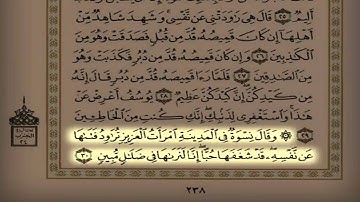 أَلِيمٌ ٢٥ قَالَ هِيَ رَٰوَدَتْنِي عَن نَّفْسِي وَشَهِدَ شَاهِدٌ مِّنْ
أَهْلِهَا إِن كَانَ قَمِيصُهُ قُدَّ مِن قُبُلٍ فَصَدَقَتْ وَهُوَ مِنَ
الْكَٰذِبِينَ ٢٦ وَإِن كَانَ قَمِيصُهُ قُدَّ مِن دُبُرٍ فَكَذَبَتْ وَهُوَ
مِنَ الصَّٰدِقِينَ ٢٧ فَلَمَّا رَءَا قَمِيصَهُ قُدَّ مِن دُبُرٍ قَالَ إِنَّهُ
مِن كَيْدِكُنَّ إِنَّ كَيْدَكُنَّ عَظِيمٌ ٢٨ يُوسُفُ أَعْرِضْ عَنْ
هَٰذَا وَاسْتَغْفِرِي لِذَنۢبِكِ إِنَّكِ كُنتِ مِنَ الْخَاطِـِٔينَ
٢٩ ۞ وَقَالَ نِسْوَةٌ فِي الْمَدِينَةِ امْرَأَتُ الْعَزِيزِ تُرَٰوِدُ فَتَىٰهَا
عَن نَّفْسِهِ قَدْ شَغَفَهَا حُبًّا إِنَّا لَنَرَىٰهَا فِي ضَلَٰلٍ مُّبِينٍ ٣٠
٢٣٨
الحزب
٢٤